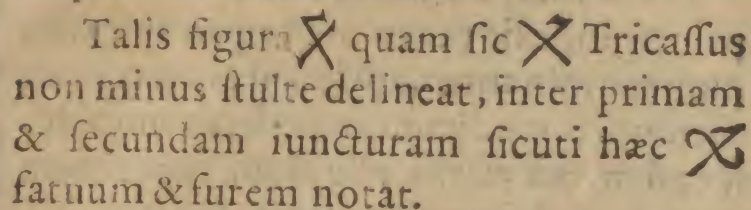 Talis figura quam ſic Tricaſſus
non minus ſtulte delineat, inter primam
& ſecundam iuncturam ſicuti hæc
fatuum & furem notat.